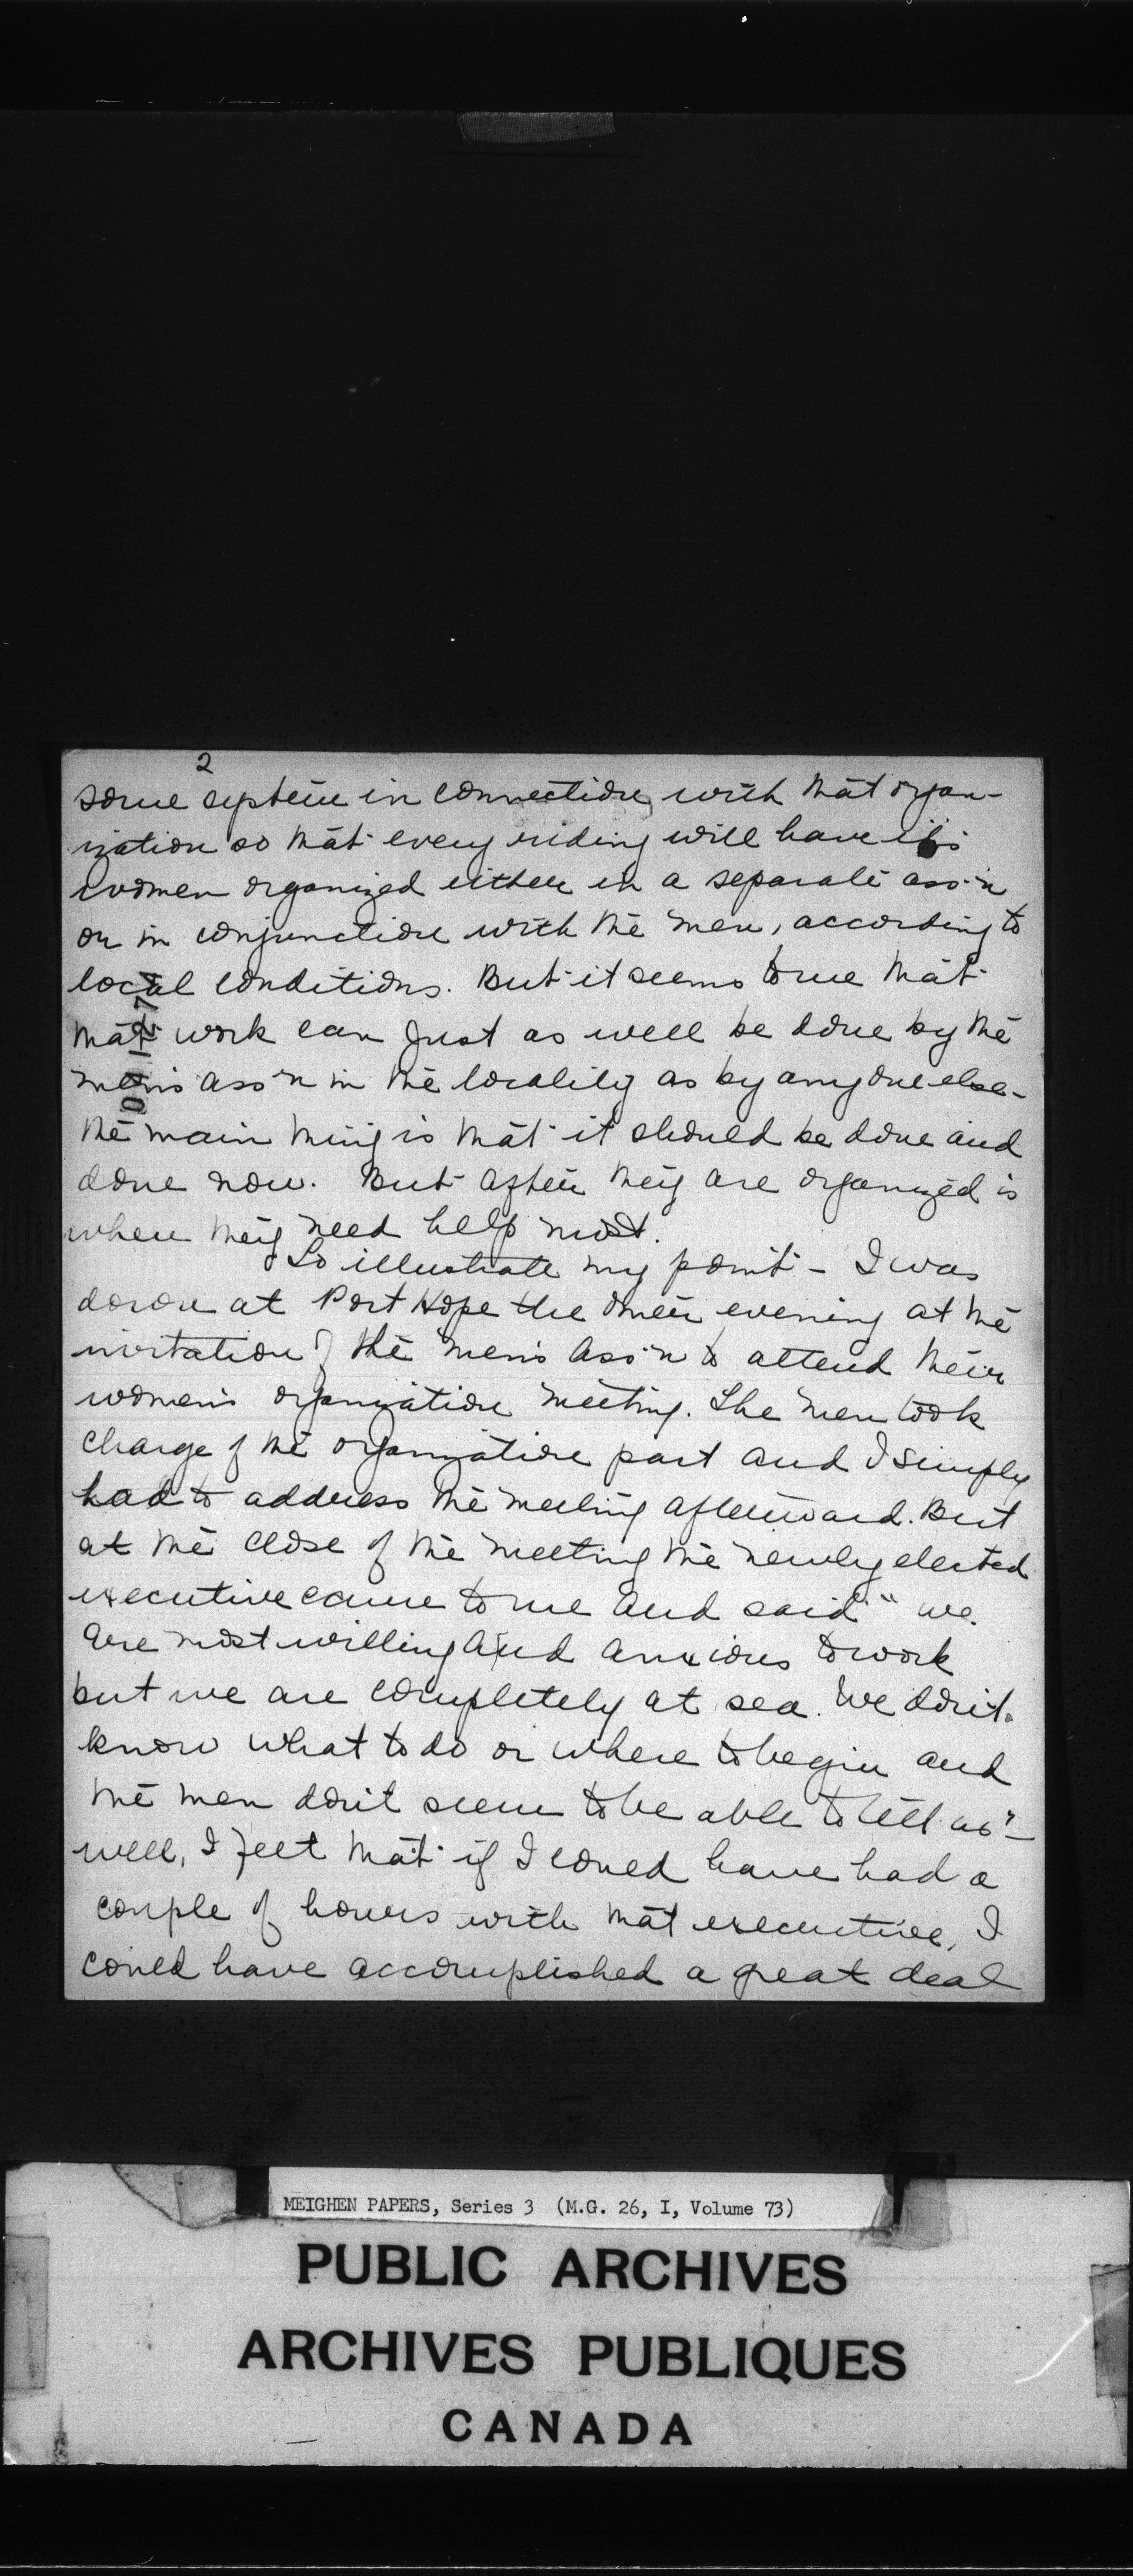 2
some system in connection with that organ-
ization so that every riding will have its
women organized either in a separate ass'n
or in conjunction with the men, according to
local conditions. But it seems to me that
that work can just as well be done by the
men's ass'n in the locality as by anyone else-
the main thing is that it should be done and
done now. But after they are organized is
when they need help most.
To illustrate my point - I was
down at Port Hope the other evening at the
invitation of the men's Ass'n to attend their
women's organization meeting. The men took
charge of the organization part and I simply
had to address the meeting afterward. But
at the close of the meeting the newly elected
executive came to me and said "we
are most willing and anxious to work
but we are completely at sea. We don't
know what to do or where to begin and
the men don't seem to be able to tell us"-
well, I felt that if I could have had a
couple of hours with that executive, I
could have accomplished a great deal
MEIGHEN PAPERS, Series 3 (M.G. 26, I, Volume 73)
PUBLIC ARCHIVES
ARCHIVES PUBLIQUES
CANADA